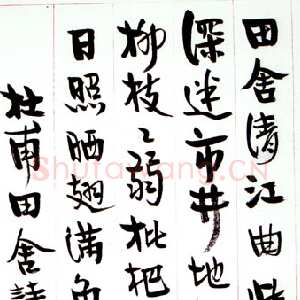 田舍清江曲柴
深迷市井地
柳枝〻弱枇杷
日照晒翅满鱼
杜甫田舍詩
Shufawang.CN